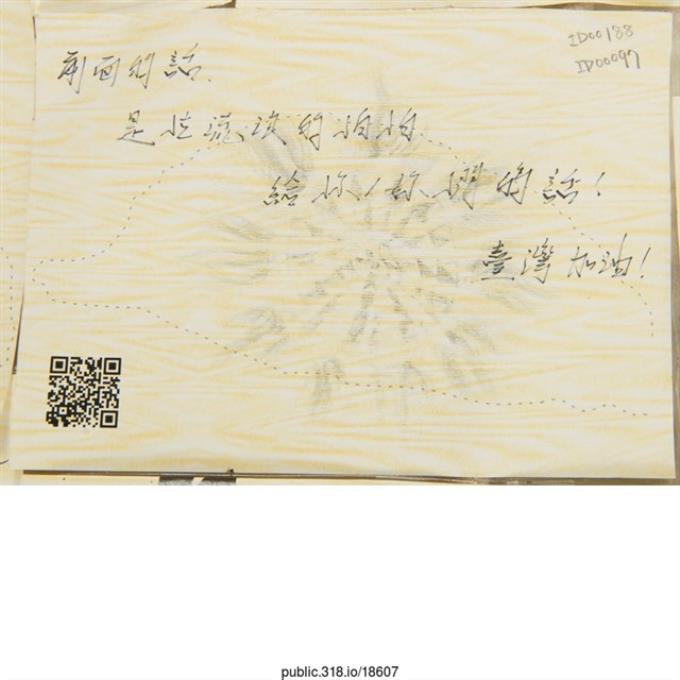 前面的話,
是位的伯伯
給你/妳們的話!
臺灣加油!
ID00188
ID00097
public.318.io/18607